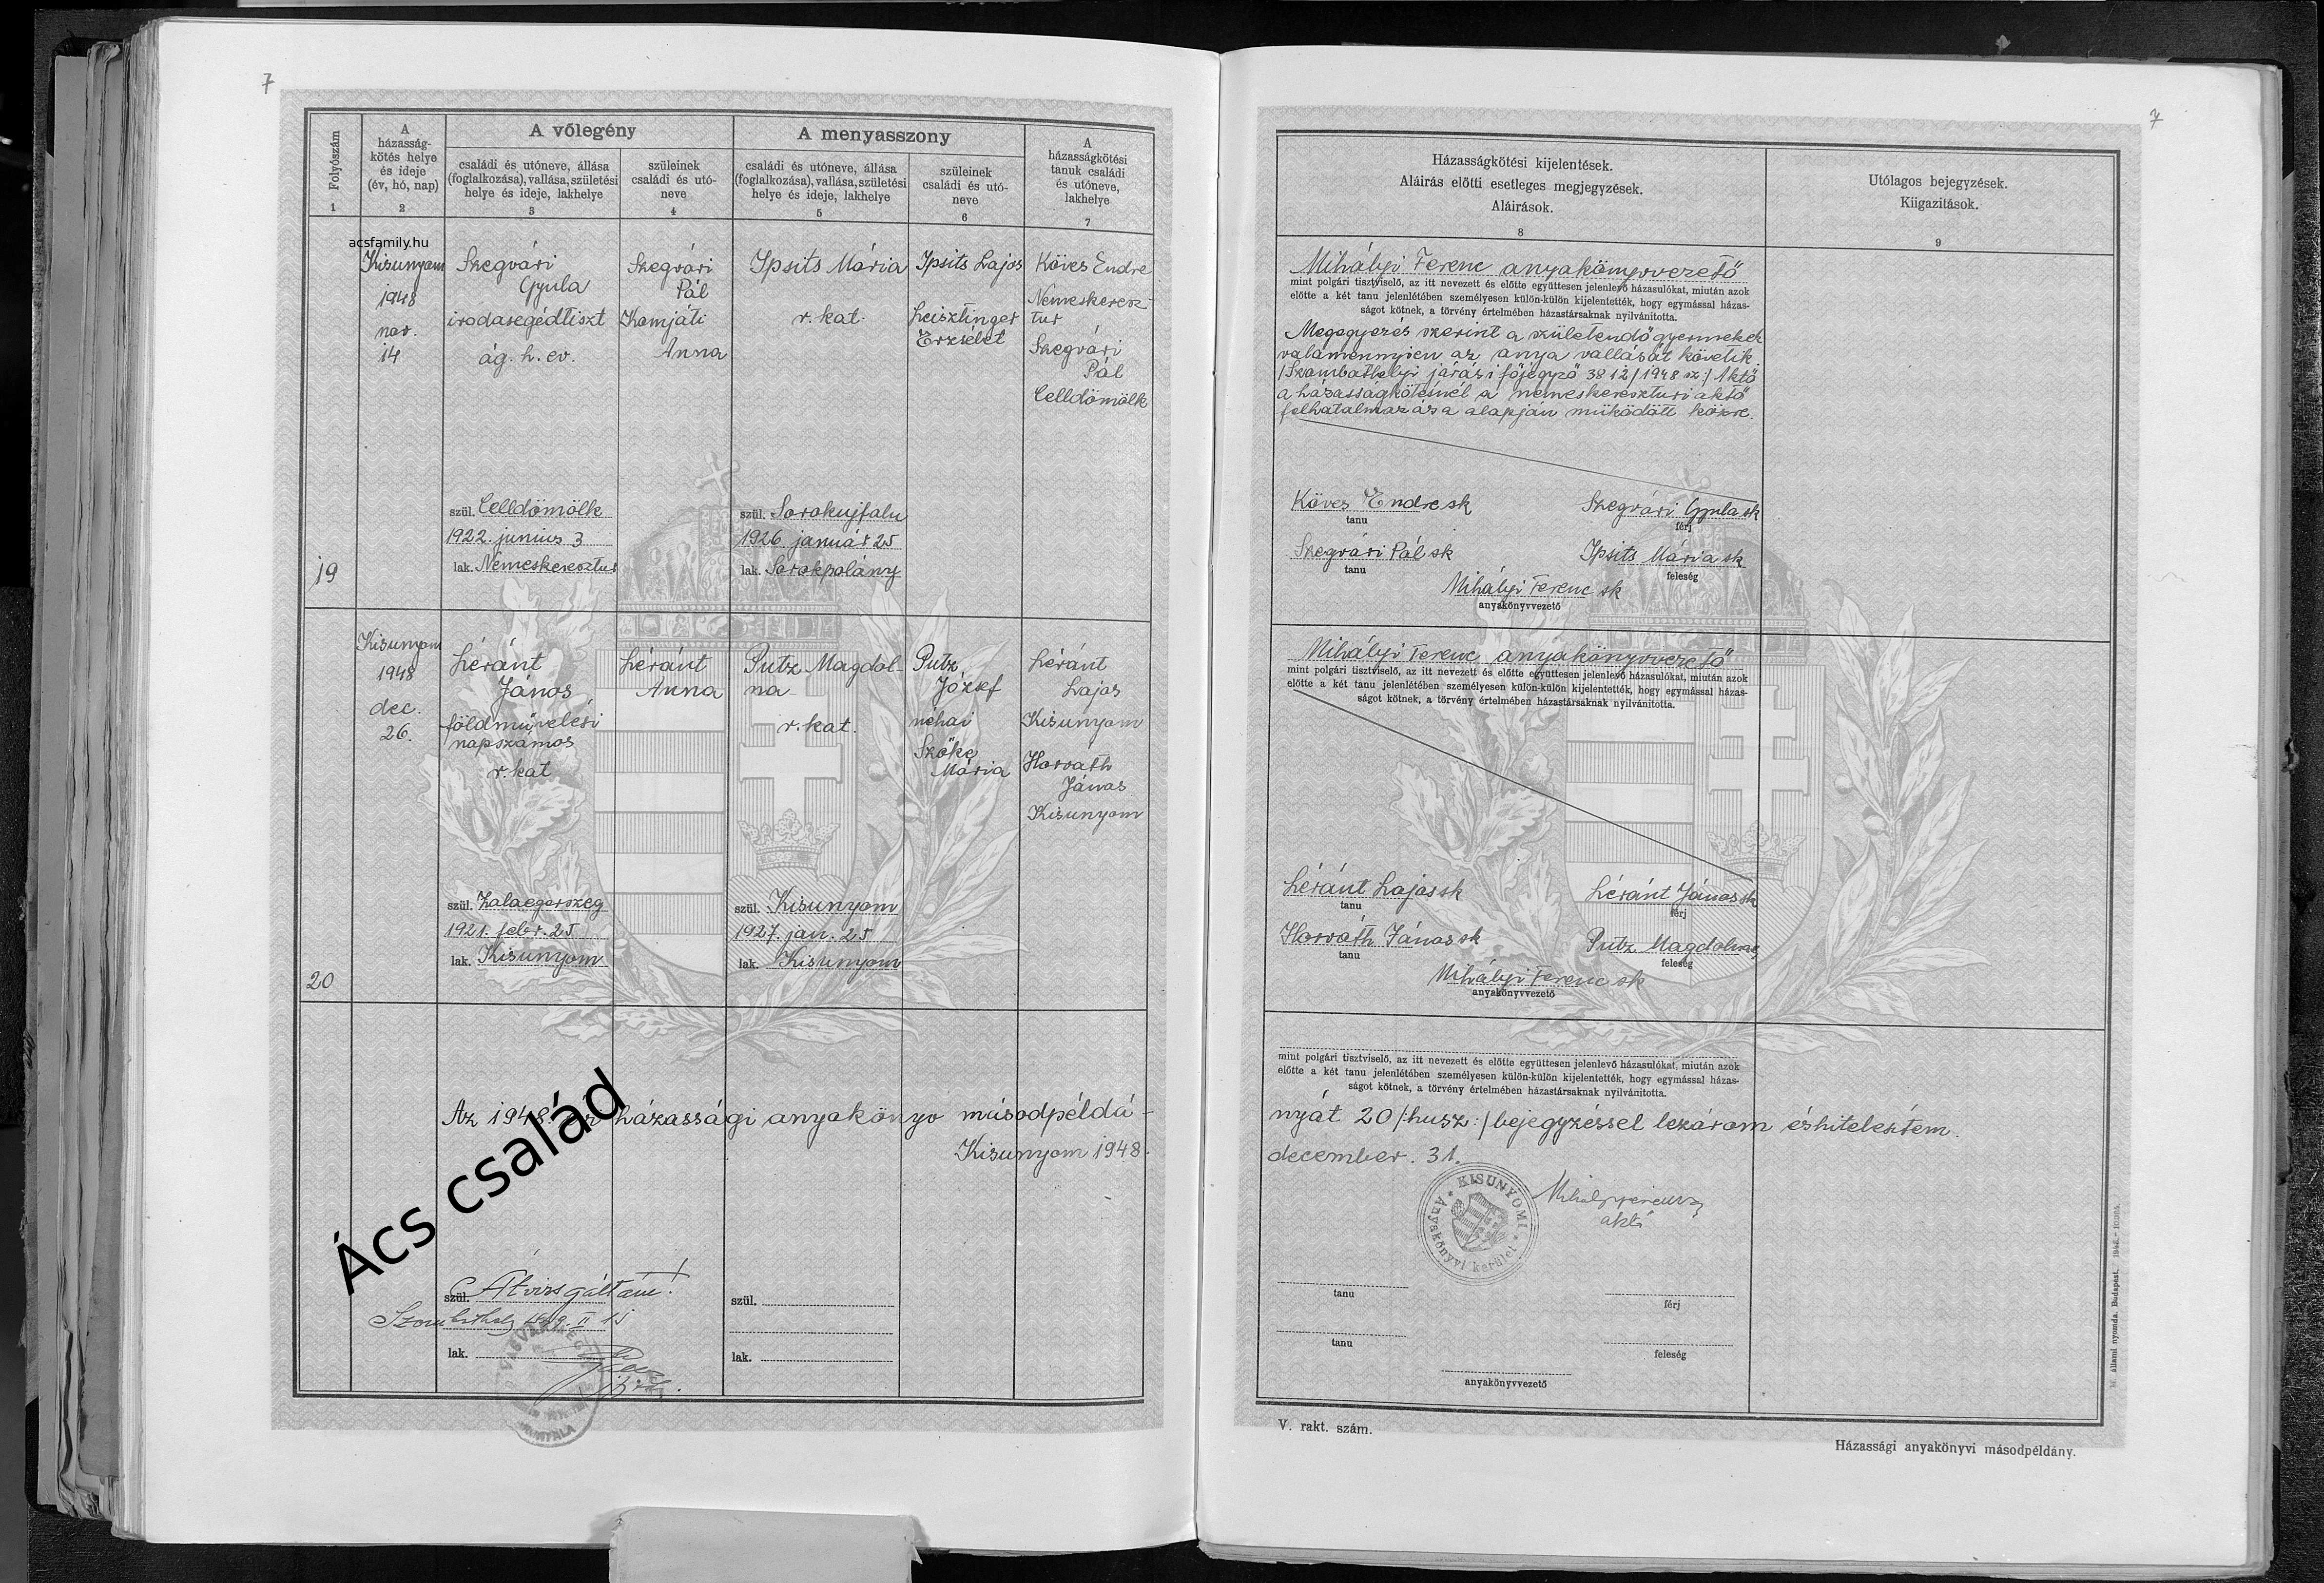 7
Folyószám
1
A
házasság-
kötés helye
és ideje
(év, hó, nap)
2
A vőlegény
családi és utóneve, állása
(foglalkozása), vallása, születési
helye és ideje, lakhelye
3
szüleinek
családi és utó-
neve
4
A menyasszony
családi és utóneve, állása
(foglalkozása), vallása, születési
helye és ideje, lakhelye
5
szüleinek
családi és utó-
neve
6
A
házasságkötési
tanuk családi
és utóneve,
lakhelye
7
acsfamily.hu
19
Kisunyom
1948
nov.
14
Szegvári
Gyula
irodasegédtiszt
ág. h. ev.
szül. Celldömölk
1922. junius 3
lak. Nemeskeresztur
Szegvári
Pál
Komjáti
Anna
Ipsits Mária
r. kat.
szül. Sorokujfalu
1926 január 25
lak. Sorokpolány
Ipsits Lajos
Leisztinger
Erzsébet
Köves Endre
Nemeskeresz-
tur
Szegvári
Pál
Celldömölk
20
Kisunyom
1948
dec.
26.
Léránt
János
földművelési
napszámos
r. kat
szül. Zalaegerszeg
1921. febr. 25
lak. Kisunyom
Léránt
Anna
Putz Magdol-
na
r. kat.
szül. Kisunyom
1927. jan. 25
lak. Kisunyom
Putz
József
néhai
Szőke
Mária
Léránt
Lajos
Kisunyom
Horváth
János
Kisunyom
Az 1948. házassági anyakönyv másodpéldá-
Kisunyom 1948.
Ács család
szül. Átvizsgáltam!
Szombathely 1949. II 15
lak.
szül.
lak.
7
Házasságkötési kijelentések.
Aláirás előtti esetleges megjegyzések.
Aláirások.
8
Utólagos bejegyzések.
Kiigazitások.
9
Mihályi Ferenc anyakönyvvezető
mint polgári tisztviselő, az itt nevezett és előtte együttesen jelenlevő házasulókat, miután azok
előtte a két tanu jelenlétében személyesen külön-külön kijelentették, hogy egymással házas-
ságot kötnek, a törvény értelmében házastársaknak nyilvánította.
Megegyezés szerint a születendő gyermekek
valamennyien az anya vallását követik
/Szombathelyi járási főjegyző 3812/1948 sz:/ Aktő
a házasságkötésnél a nemeskereszturi aktő
felhatalmazása alapján működött közre.
Köves Endre sk
tanu
Szegvári Gyula sk
férj
Szegvári Pál sk
tanu
Ipsits Mária sk
feleség
Mihályi Ferenc sk
anyakönyvvezető
Mihályi Ferenc anyakönyvvezető
mint polgári tisztviselő, az itt nevezett és előtte együttesen jelenlevő házasulókat, miután azok
előtte a két tanu jelenlétében személyesen külön-külön kijelentették, hogy egymással házas-
ságot kötnek, a törvény értelmében házastársaknak nyilvánította.
Léránt Lajos sk
tanu
Léránt János sk
férj
Horváth János sk
tanu
Putz Magdolna
feleség
Mihályi Ferenc sk
anyakönyvvezető
mint polgári tisztviselő, az itt nevezett és előtte együttesen jelenlevő házasulókat, miután azok
előtte a két tanu jelenlétében személyesen külön-külön kijelentették, hogy egymással házas-
ságot kötnek, a törvény értelmében házastársaknak nyilvánította.
nyát 20/:husz:/ bejegyzéssel lezárom és hitelesítem.
december. 31.
KISUNYOMI
Anyakönyvi kerület
aktő
tanu
férj
tanu
feleség
anyakönyvvezető
V. rakt. szám.
Házassági anyakönyvi másodpéldány.
M. állami nyomda, Budapest, 1948.